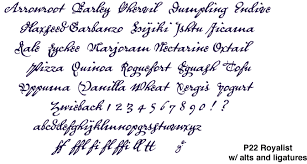 Arrowroot Barley Chervil Dumpling Endive
Flaxseed Garbanzo Hijiki Ishtu Jicama
Kale Lychee Marjoram Nectarine Oxtail
Pizza Quinoa Roquefort Squash Tofu
Uppuma Vanilla Wheat Xergis Yogurt
Zwieback 1 2 3 4 5 6 7 8 9 0 ! ?
abcdefghijklmnopqrstuvwxyz
ff ffl fi fl ffi ll tt
P22 Royalist
w/ alts and ligatures